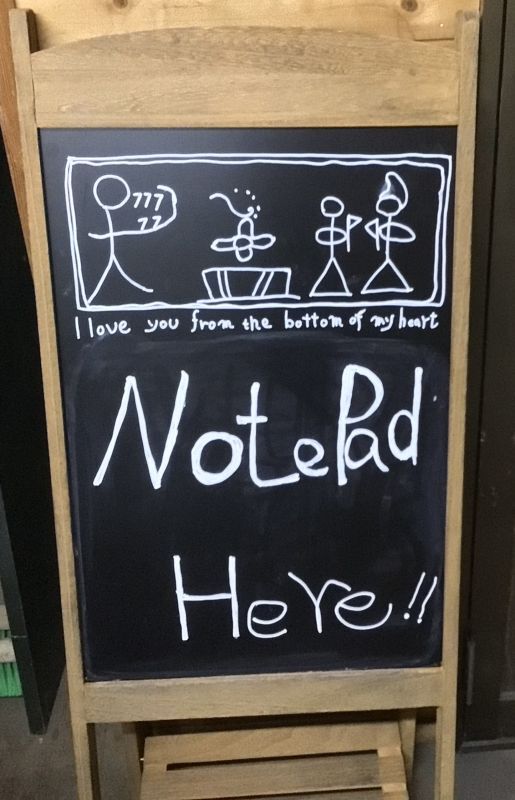 777
77
I love you from the bottom of my heart
NotePad
Here!!